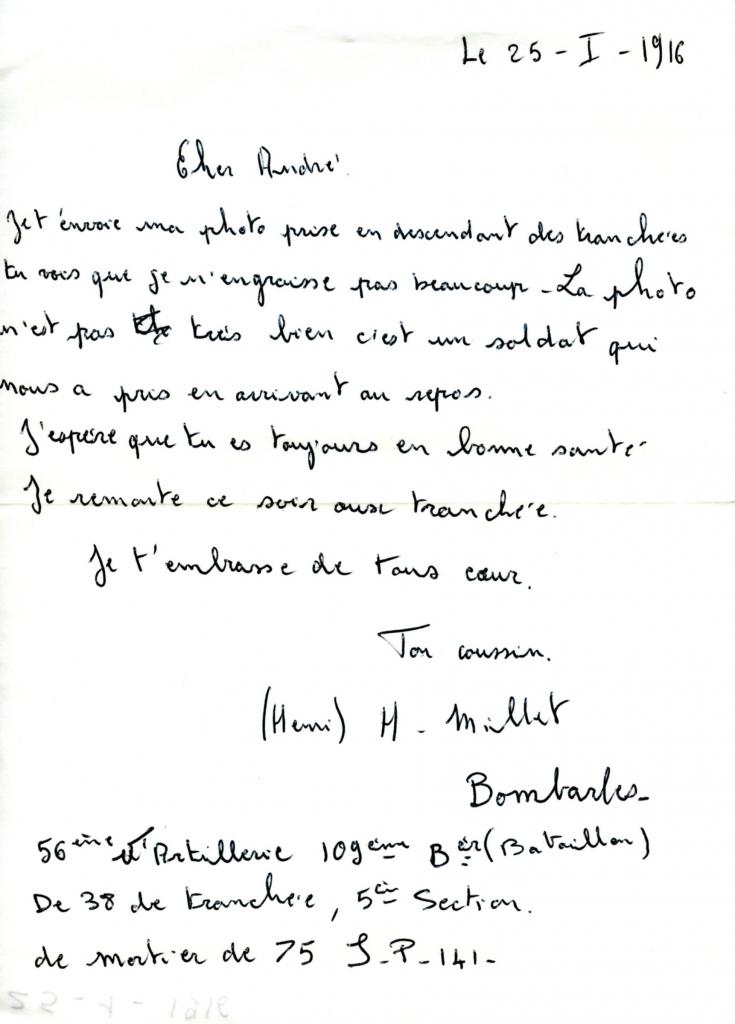 Le 25 - I - 1916
Cher André.
Je t'envoie ma photo prise en descendant des tranchées
tu vois que je n'engraisse pas beaucoup - La photo
n'est pas très bien c'est un soldat qui
nous a pris en arrivant au repos.
J'espère que tu es toujours en bonne santé -
Je remonte ce soir aux tranchée.
Je t'embrasse de tous cœur.
Ton coussin.
(Henri) H - Millet
Bombardes -
56ème d'Artillerie 109ème Bér (Bataillon)
De 38 de tranchée, 5è Section.
de mortier de 75 S-P-141-
25 - I - 1916